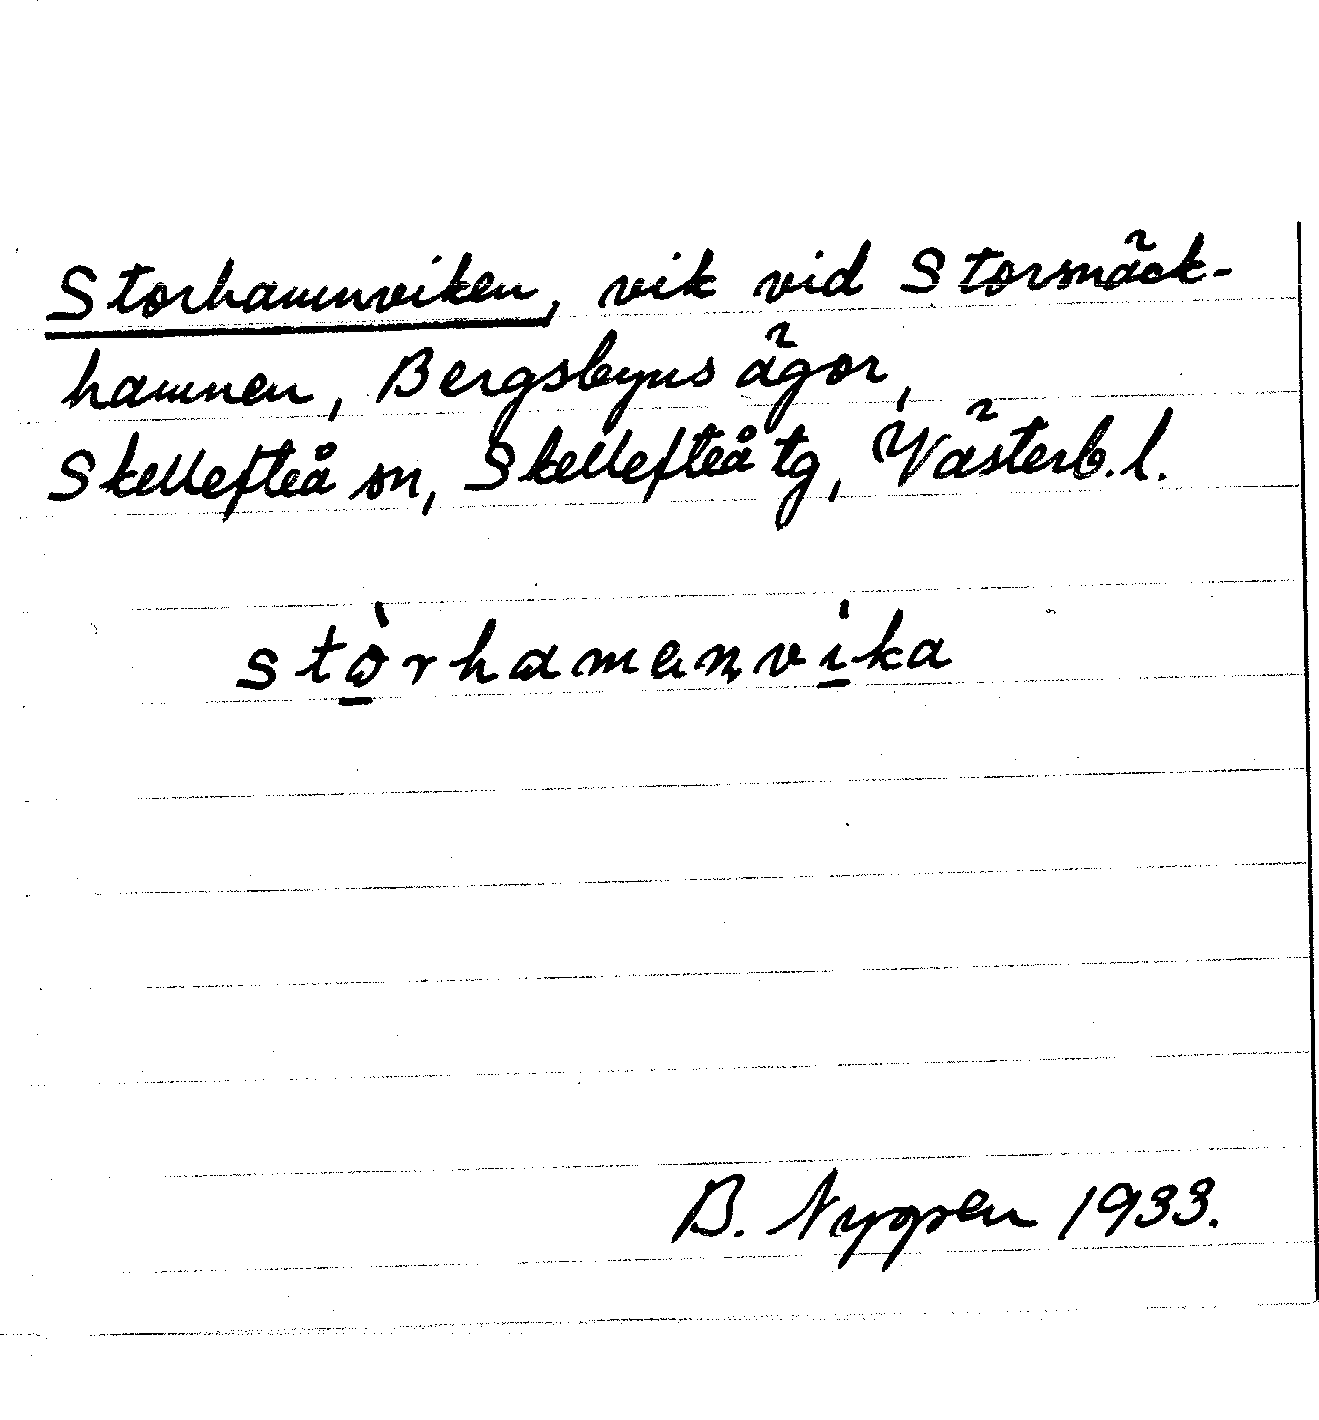 Storhamnviken, vik vid Storsnäck-
hamnen, Bergsbyns ägor,
Skellefteå sn, Skellefteå tg, Västerb. l.
stòrhamenvíka
B. Nygren 1933.